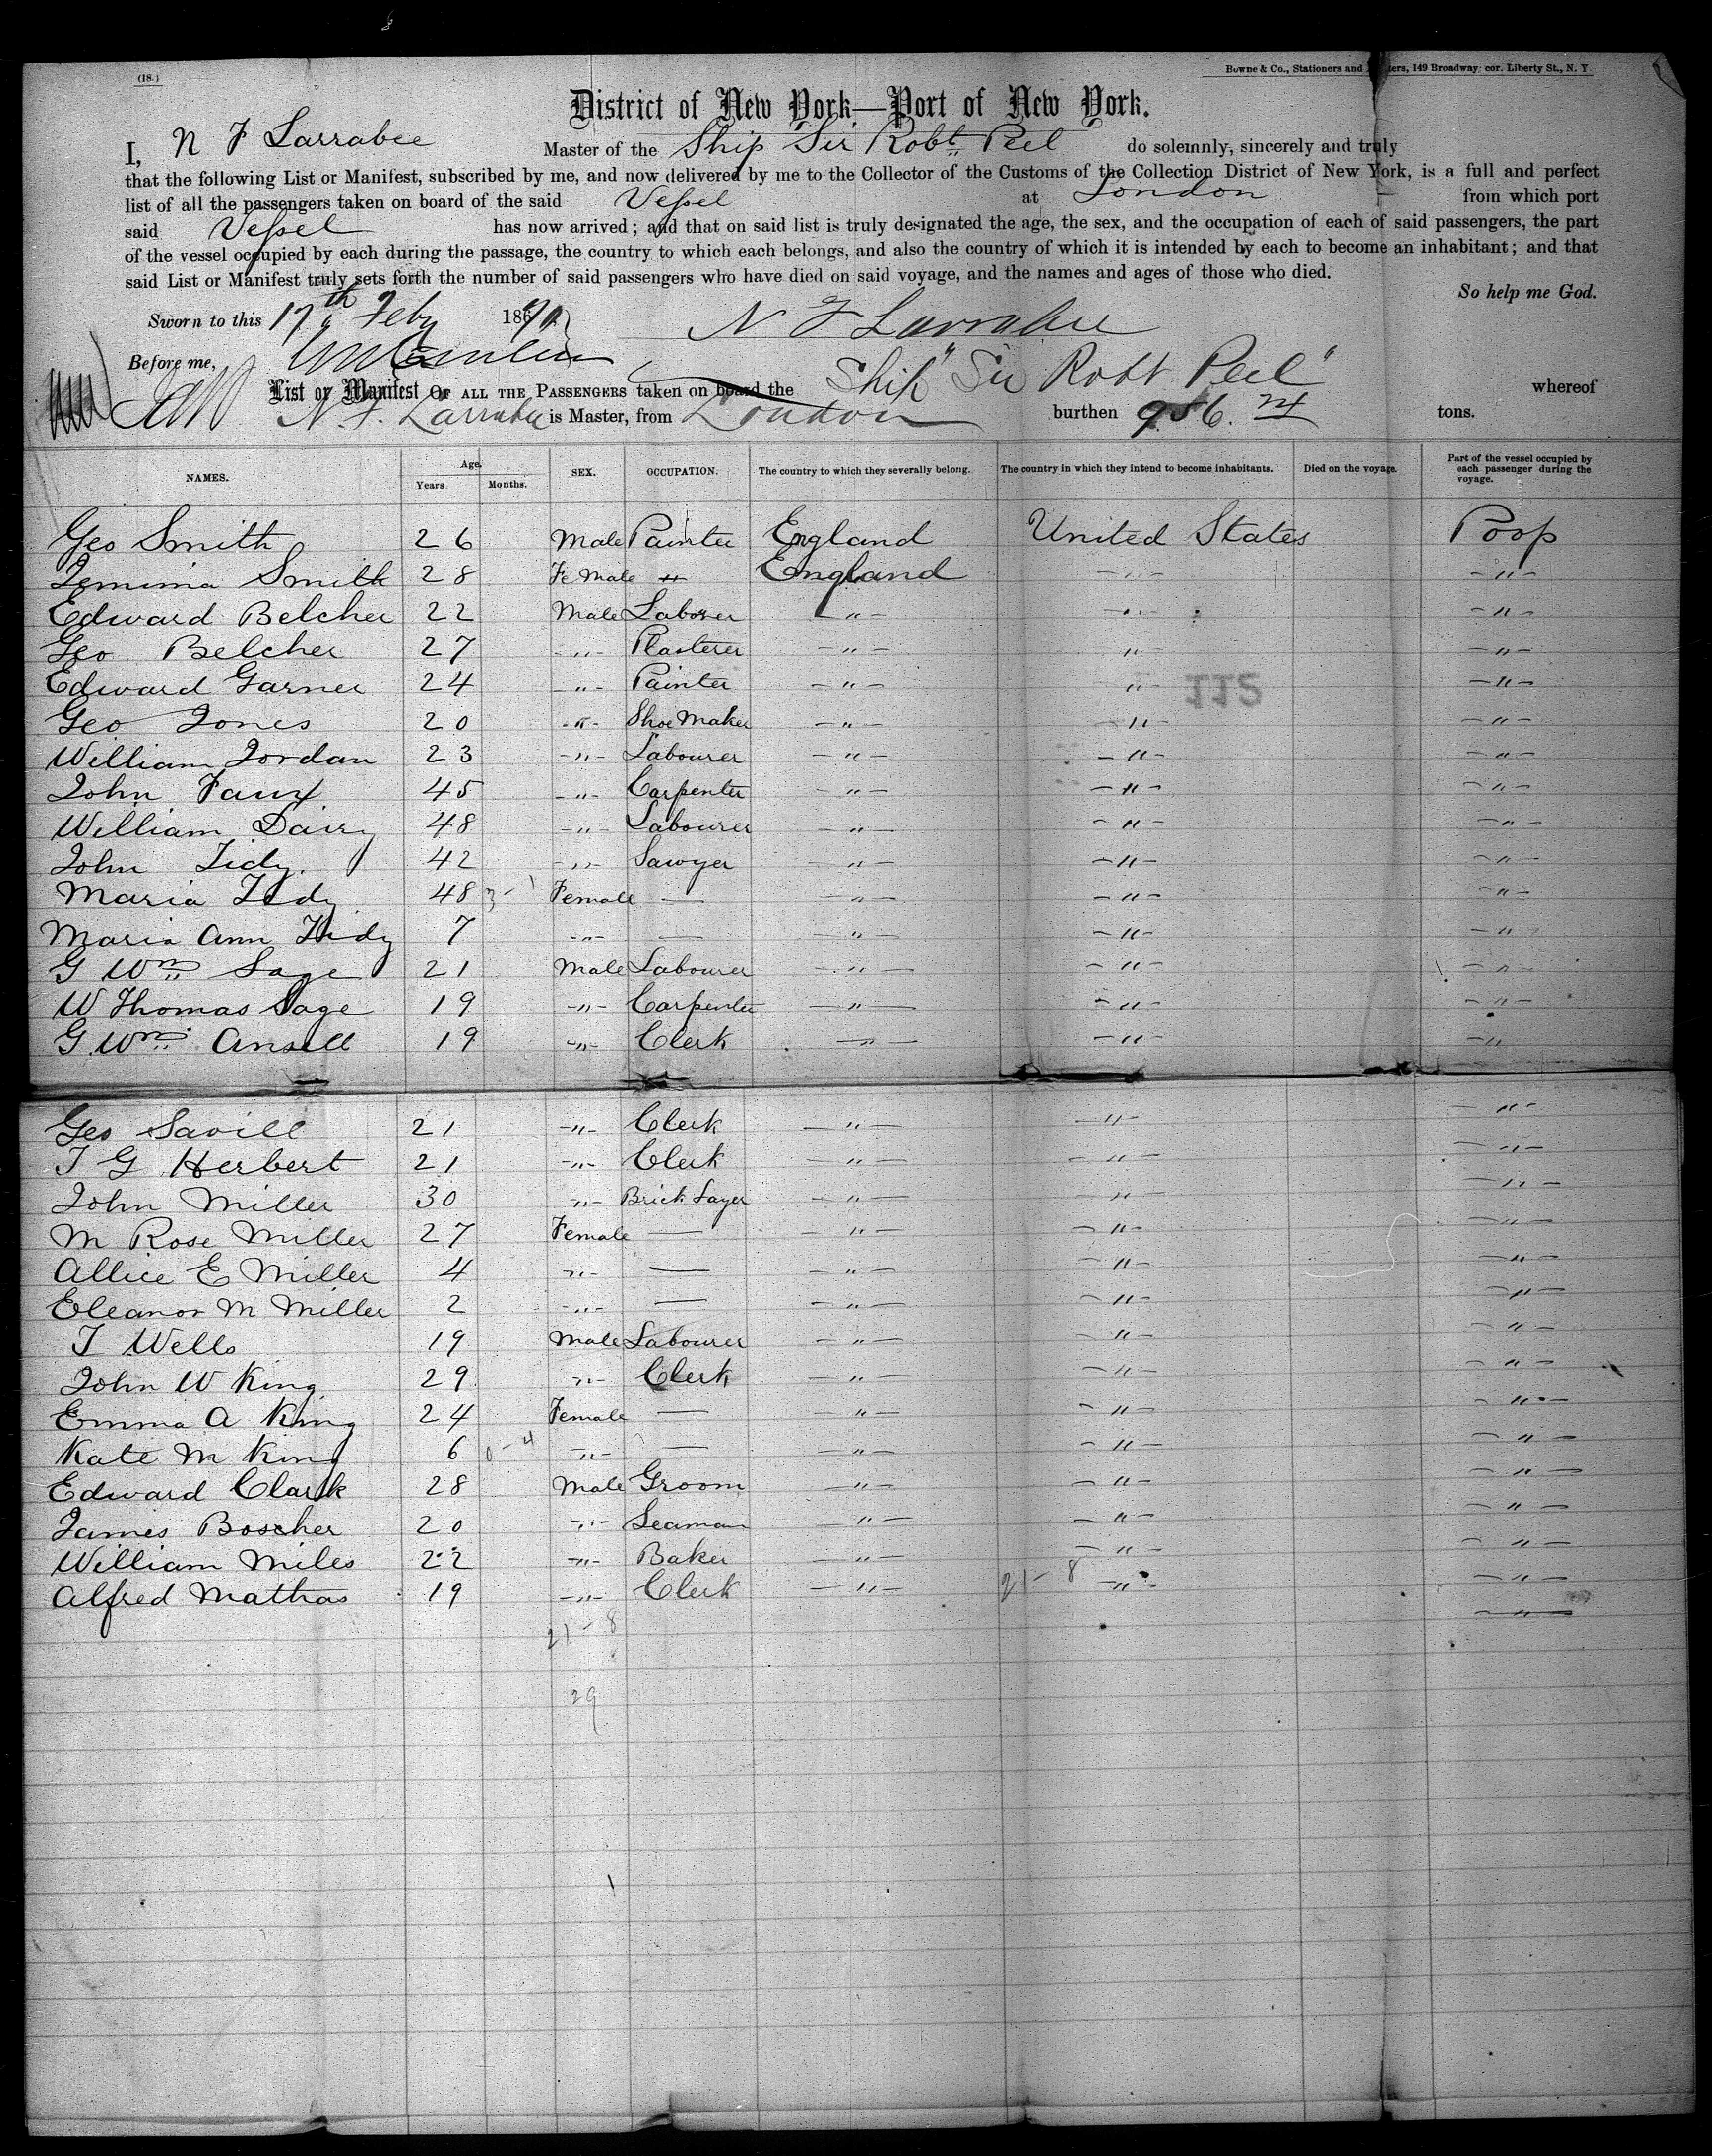 (18.)
Bowne & Co., Stationers and ters, 149 Broadway cor. Liberty St., N. Y.
District of New York—Port of New York.
I, N F Larrabee Master of the Ship Sir Robt. Peel do solemnly, sincerely and truly
that the following List or Manifest, subscribed by me, and now delivered by me to the Collector of the Customs of the Collection District of New York, is a full and perfect
list of all the passengers taken on board of the said Vessel at London from which port
said Vessel has now arrived; and that on said list is truly designated the age, the sex, and the occupation of each of said passengers, the part
of the vessel occupied by each during the passage, the country to which each belongs, and also the country of which it is intended by each to become an inhabitant; and that
said List or Manifest truly sets forth the number of said passengers who have died on said voyage, and the names and ages of those who died.
So help me God.
Sworn to this 17th Feby 1870 N F Larrabee
Before me,
List or Manifest OF ALL THE PASSENGERS taken on board the Ship "Sir Robt Peel" whereof
N. F. Larrabee is Master, from London burthen 956. tons.
NAMES. Age. Years. Months. SEX. OCCUPATION. The country to which they severally belong. The country in which they intend to become inhabitants. Died on the voyage. Part of the vessel occupied by each passenger during the voyage.
Geo Smith 26 Male Painter England United States Poop
Jemima Smith 28 Fe Male " England " "
Edward Belcher 22 Male Laborer " " "
Geo Belcher 27 " Plasterer " " "
Edward Garner 24 " Painter " " "
112
Geo Jones 20 " Shoe Maker " " "
William Jordan 23 " Labourer " " "
John Faux 45 " Carpenter " " "
William Dairy 48 " Labourer " " "
John Tidy. 42 " Sawyer " " "
Maria Tidy 48 3 - 1 Female — " " "
Maria Ann Tidy 7 " — " " "
G Wm Sage 21 Male Labourer " " "
W Thomas Sage 19 " Carpenter " " "
G Wm Ansell 19 " Clerk " " "
Geo Savill 21 " Clerk " " "
T G Herbert 21 " Clerk " " "
John Miller 30 " Brick Layer " " "
M Rose Miller 27 Female — " " "
Allice E Miller 4 " — " " "
Eleanor M Miller 2 " — " " "
T Wells 19 Male Labourer " " "
John W King 29 " Clerk " " "
Emma A King 24 Female — " " "
Kate M King 6 0 - 4 " — " " "
Edward Clark 28 Male Groom " " "
James Boscher 20 " Seaman " " "
William Miles 22 " Baker " " "
Alfred Mathas 19 " Clerk " 21 - 8 " "
21 - 8 "
29